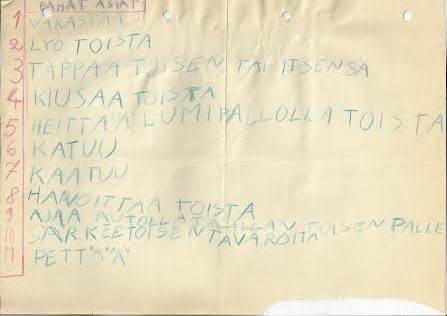 PAHAT ASIAT
1 VARASTAA
2 LYÖ TOISTA
3 TAPPAA TOISEN TAI ITSENSÄ
4 KIUSAA TOISTA
5 HEITTÄÄ LUMIPALLOLLA TOISTA
6 KATUU
7 KAATUU
8 HAAVOITTAA TOISTA
9 AJAA AUTOLLA TAHALLAN TOISEN PÄLLE
10 SÄRKEE TOISEN TAVAROITA
11 PETTÄÄ